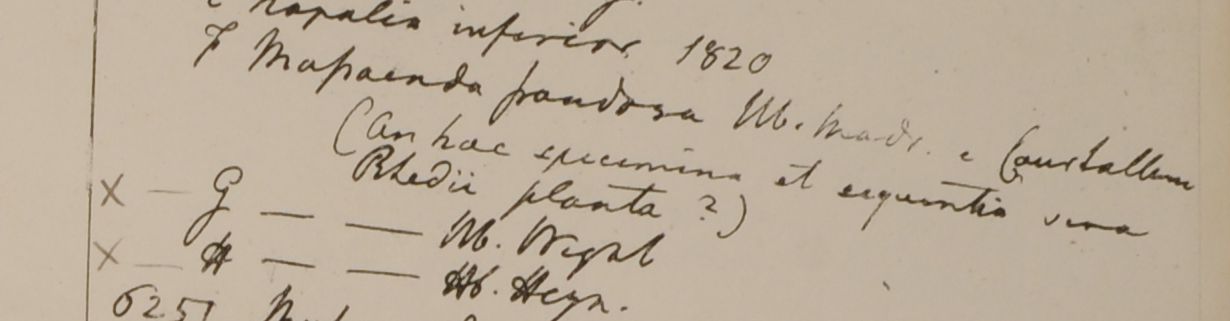 Napalia inferior 1820
F Mussaenda frondosa Hb. Madr. e Courtallum
(An haec specimina et sequentia vera
Rhedii planta ?)
X — G — — Hb. Wight
X — H — — Hb. Heyn.
6251